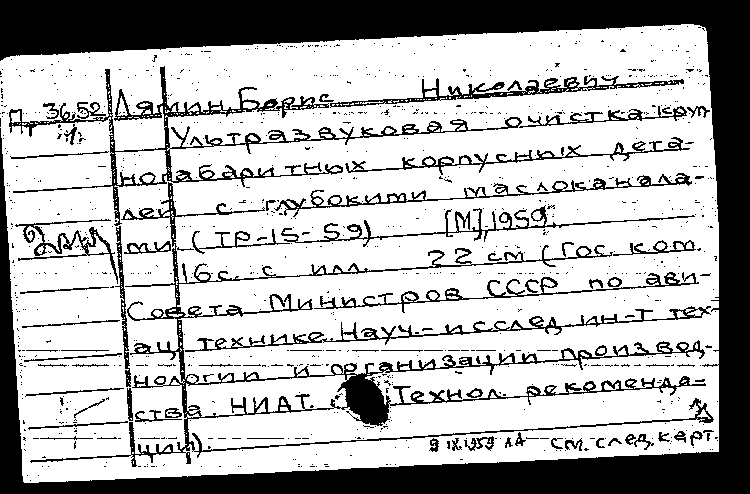 Пр 36,52 Лямин, Борис Николаевич
1.
Ультразвуковая очистка круп-
ногабаритных корпусных дета-
лей с глубокими маслоканала-
ми (ТР-15-59) [М], 1959.
16 с. с илл. 22 см (Гос. ком.
Совета Министров СССР по ави-
ац. технике. Науч.-исслед. ин-т тех-
нологии и организации производ-
ства. НИАТ. Технол. рекоменда-
ции).
9 IX.1959 см. след. карт.